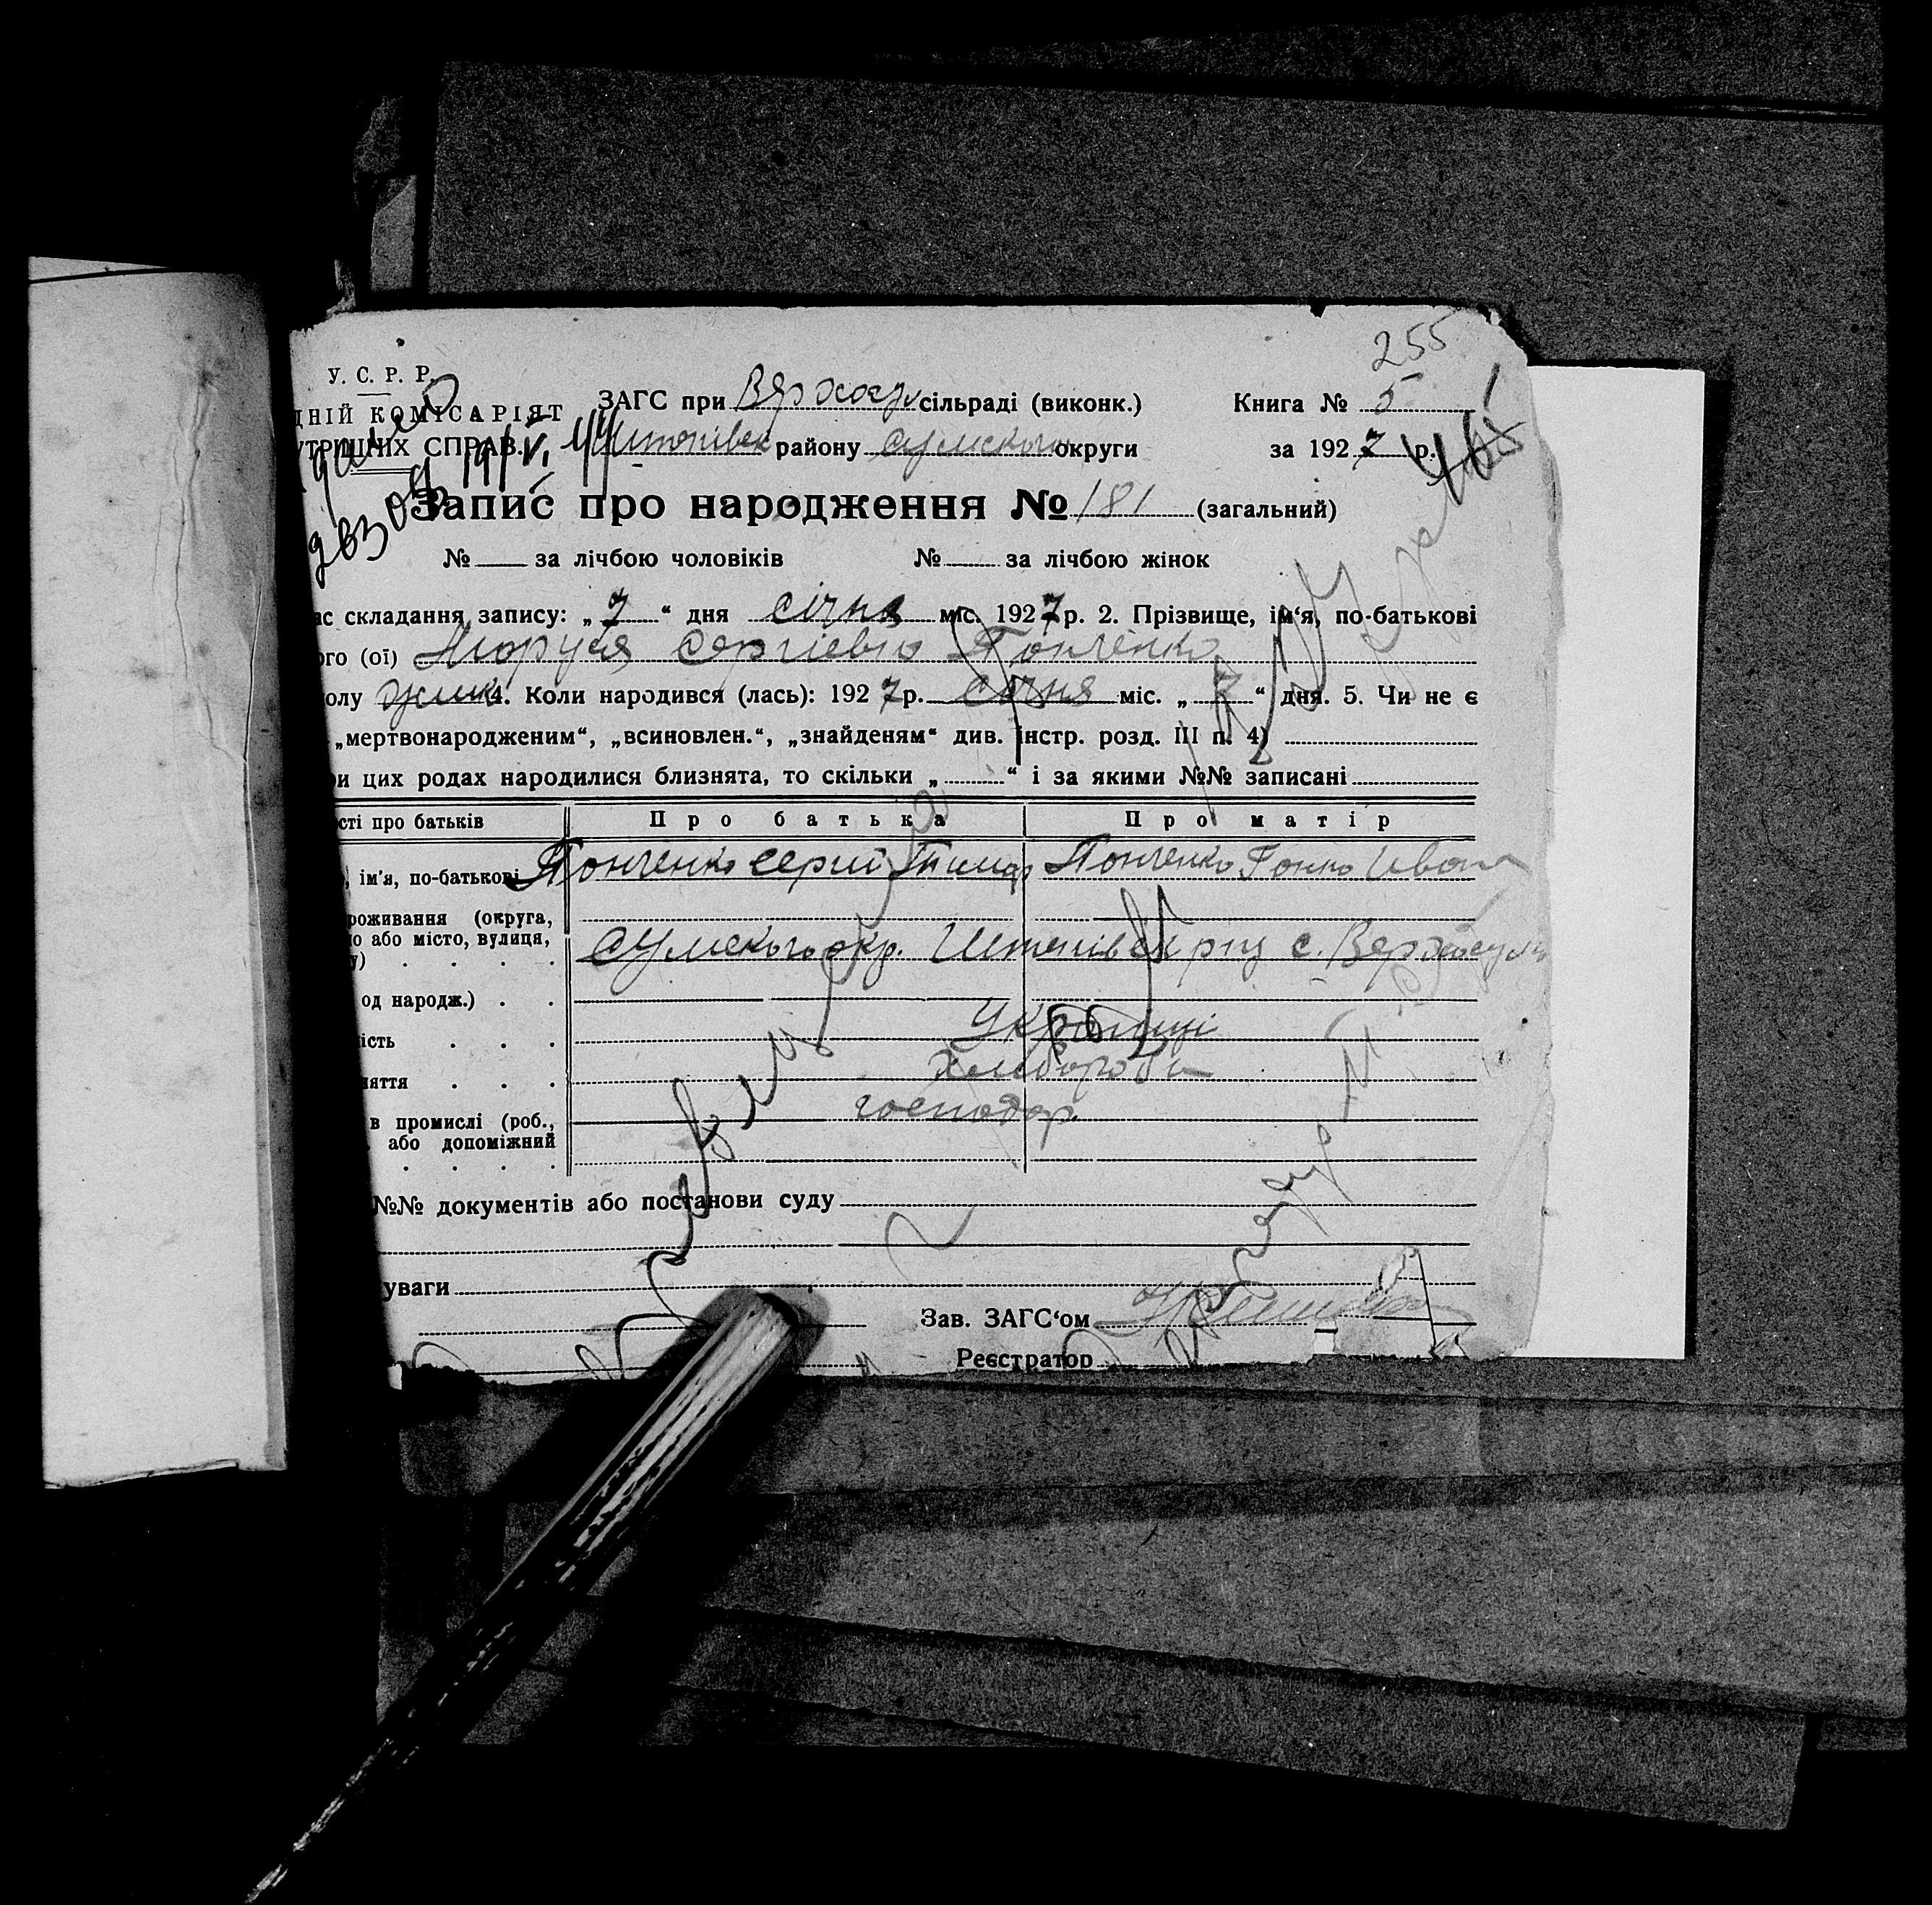 255
У. С. Р. Р.
ДНІЙ КОМІСАРІЯТ
УТРІШНІХ СПРАВ.
ЗАГС при Верхосул сільраді (виконк.)
Книга № 5
Штепівск району Сумського округи
за 1927 р.
Запис про народження № 181 (загальний)
№ за лічбою чоловіків № за лічбою жінок
ас складання запису: „7“ дня січня міс. 1927 р. 2. Прізвище, ім‘я, по-батькові
ого (ої) Маруся Сергіевна Панченко
олу жіноч 4. Коли народився (лась): 1927 р. січня міс. „7“ дня. 5. Чи не є
„мертвонародженим“, „всиновлен.“, „знайденям“ див. інстр. розд. III п. 4)
ри цих родах народилися близнята, то скільки „ “ і за якими №№ записані
сті про батьків Про батька Про матір
ім'я, по-батькові Панченко Сергій Тимоф Панченко Ганна Иван
роживання (округа,
о або місто, вулиця,
у) Сумського окр. Штепівск рну с. Верхосули
од народж.)
ість Українці
няття Хлибороби
в промислі (роб., господар.
або допоміжний
№№ документів або постанови суду
уваги
Зав. ЗАГС‘ом
Реєстратор